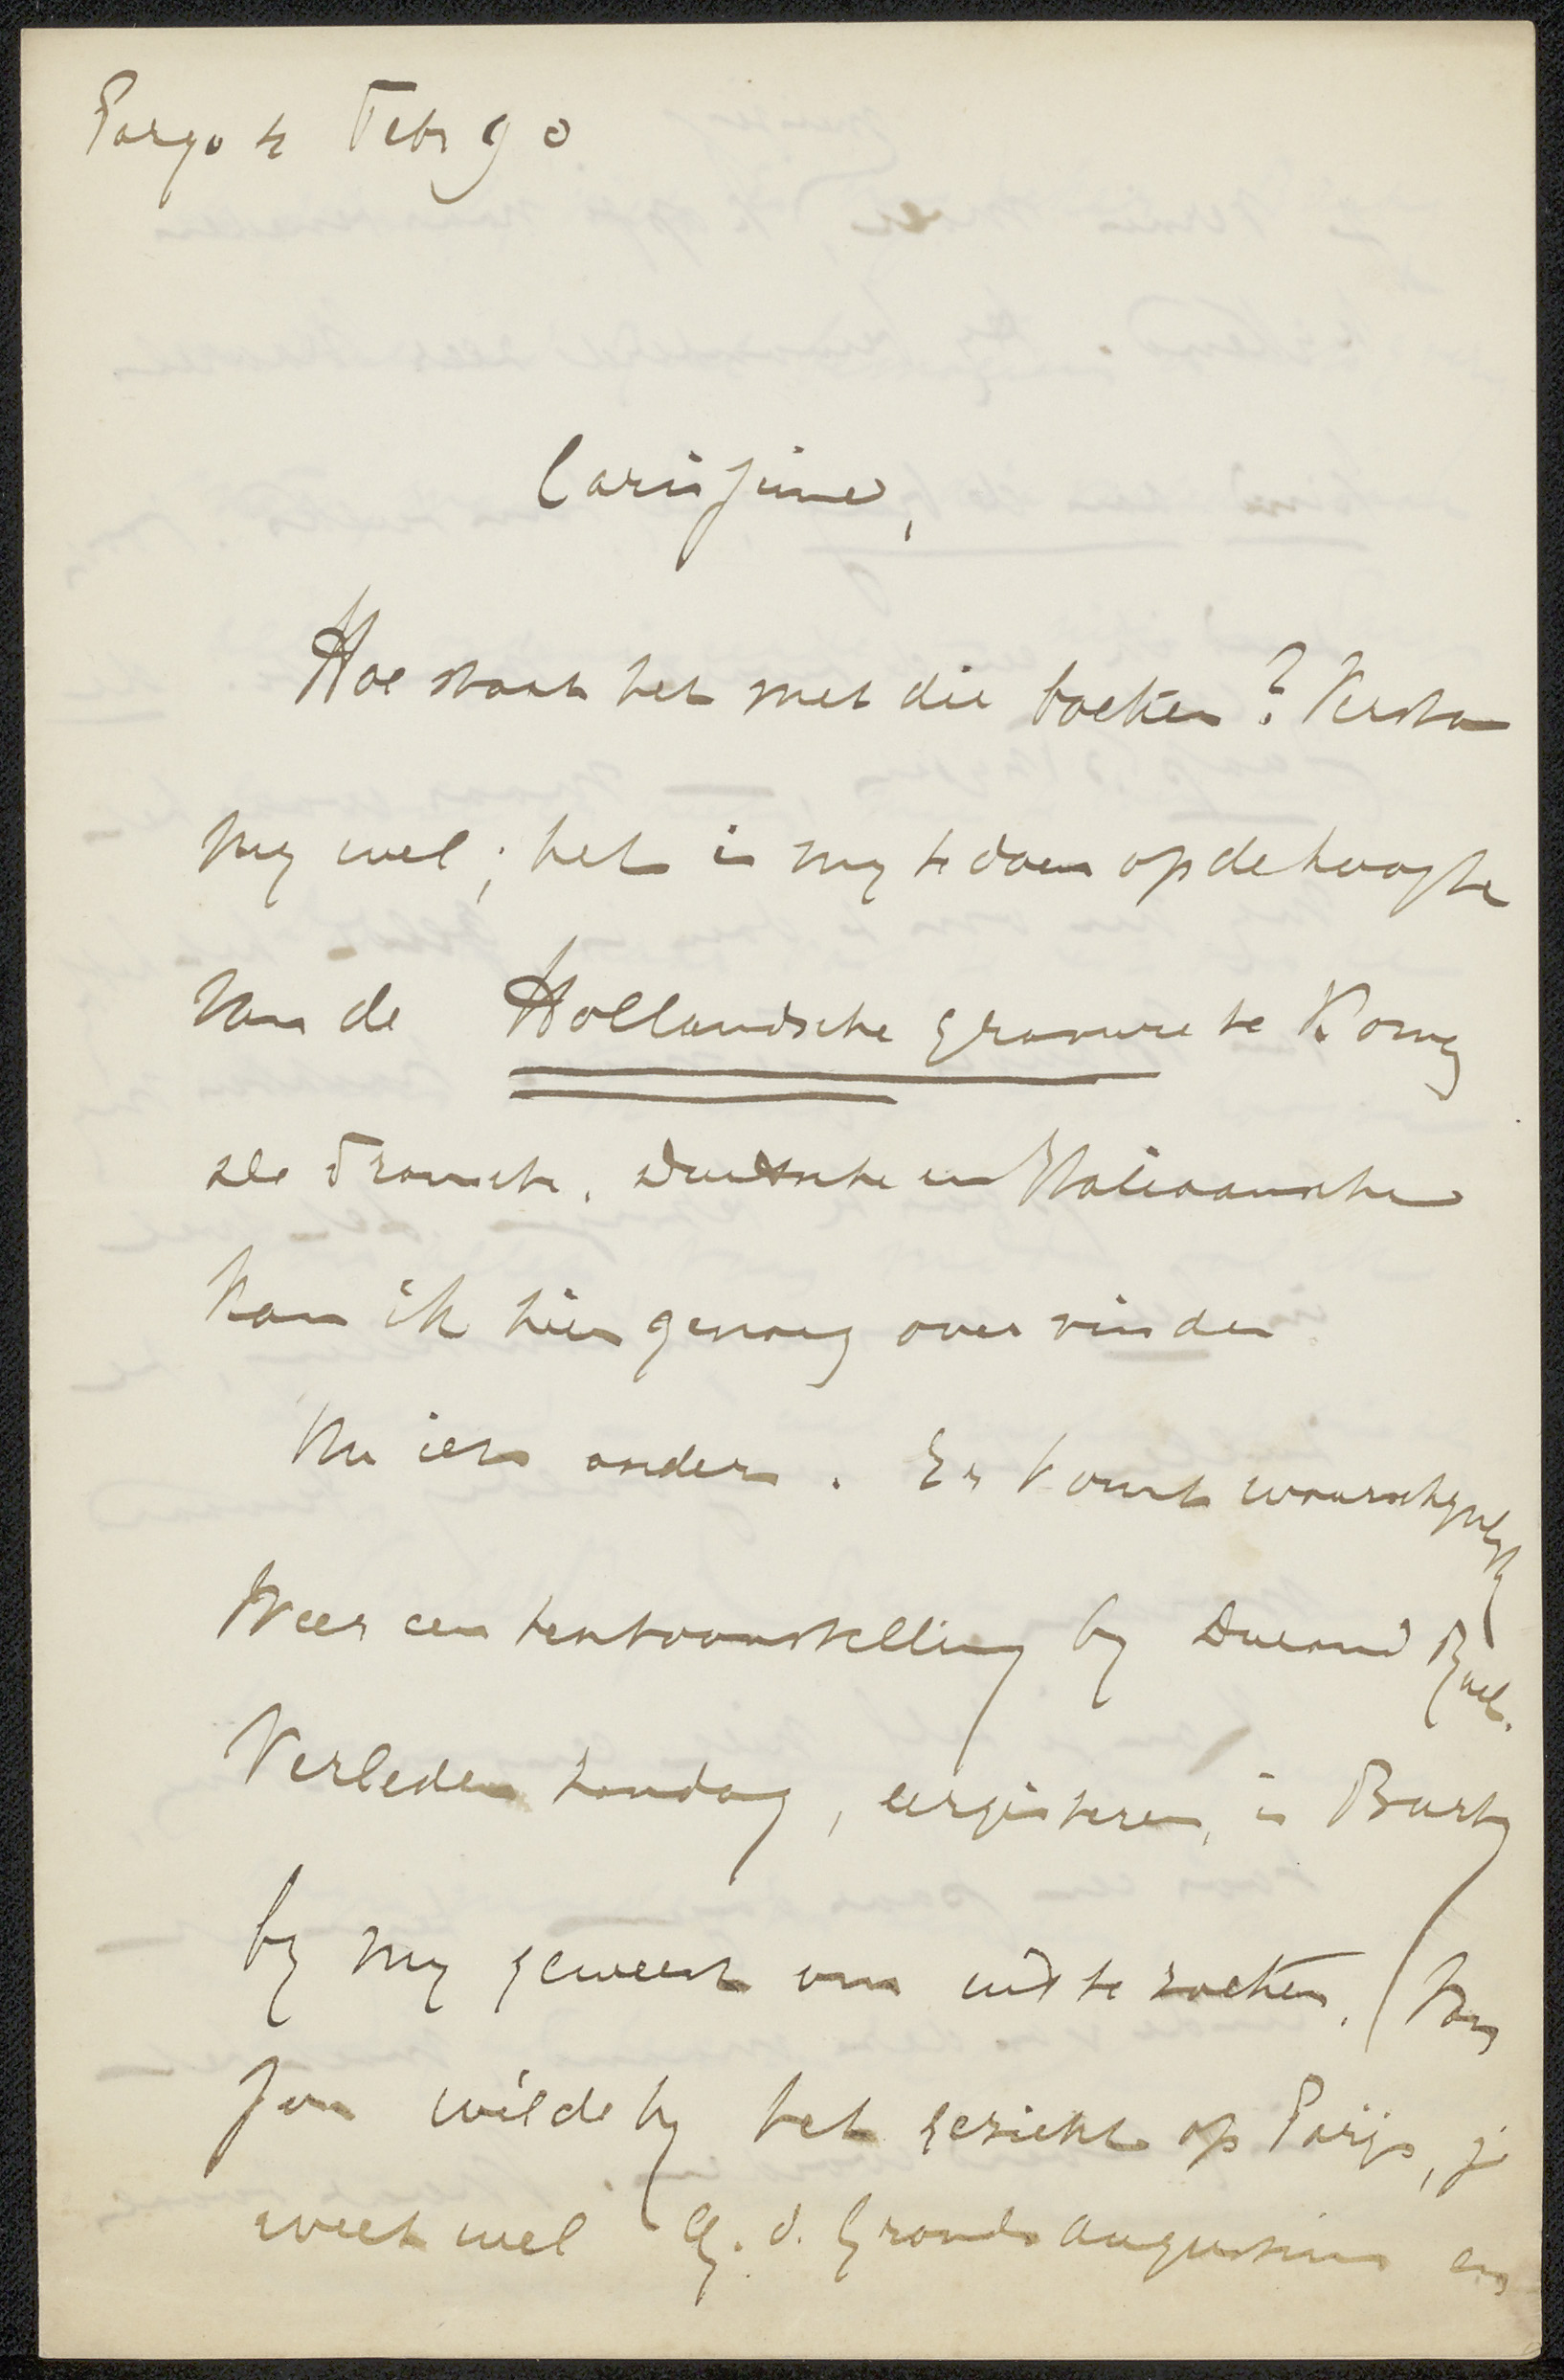 Parijs 4 Febr 90
Carissime,
Hoe staat het met die boeken? Versta
my wel; het is my te doen op de hoogte
van de Hollandsche gravure te komen
de Fransche, Duitsche en Italiaansche
kan ik hier genoeg over vinden
Nu iets anders. Er komt waarschynlyk
weer een tentoonstelling by Durand Ruel.
Verleden zondag, eergisteren, is Burty
by my geweest om uit te zoeken. Van
jou wilde hy het gezicht op Parijs, je
weet wel Q. d. Grands Augustins en